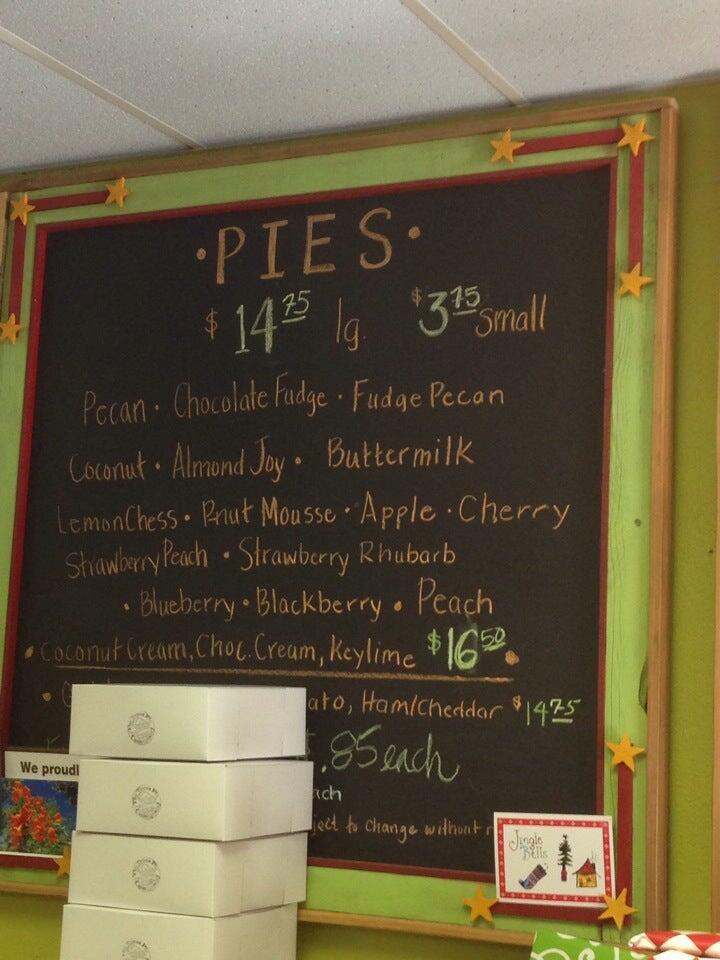 • PIES •
$14 75 lg. $3 75 small
Pecan • Chocolate Fudge • Fudge Pecan
Coconut • Almond Joy • Buttermilk
Lemon Chess • Pnut Mousse • Apple • Cherry
Strawberry Peach • Strawberry Rhubarb
• Blueberry • Blackberry • Peach
• Coconut Cream, Choc. Cream, Keylime $16 50 •
ato, Ham/Cheddar $14 75
.85 each
ach
ject to change without
We proudl
Jingle
Bells